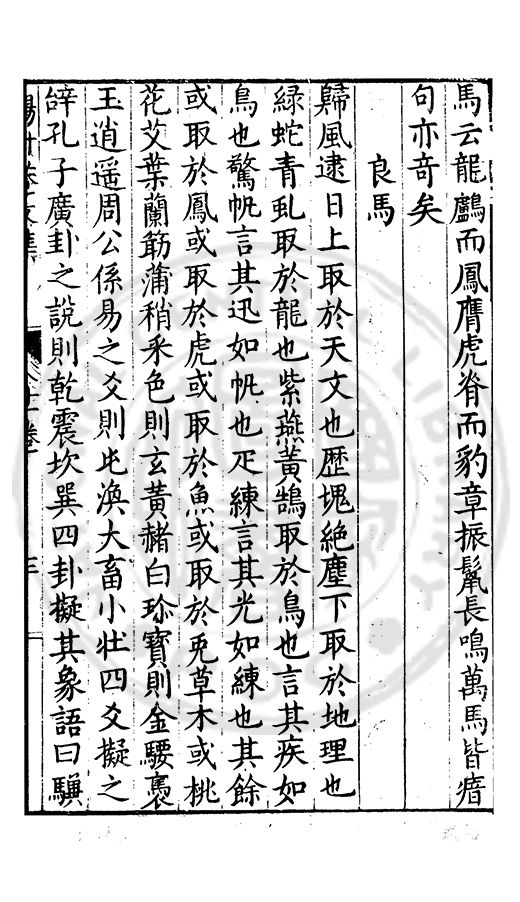 馬云龍鸕而鳳膺虎脊而豹章振鬣長鳴萬馬皆瘖
句亦奇矣
良馬
歸風逮日上取於天文也歷塊絕塵下取於地理也
綠蛇青虬取於龍也紫燕黃鵠取於鳥也言其疾如
鳥也驚帆言其迅如帆也疋練言其光如練也其餘
或取於鳳或取於虎或取於魚或取於兎草木或桃
花艾葉蘭筋蒲稍釆色則玄黃赭白珎寶則金騕褭
玉逍遥周公係易之爻則屯渙大畜小壯四爻擬之
辝孔子廣卦之說則乾震坎巽四卦擬其象語曰驥